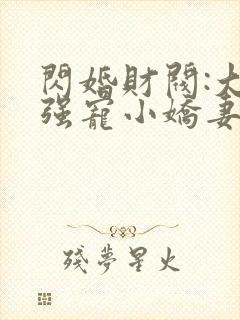 閃婚財閥:大
强寵小嬌妻
殘夢星火